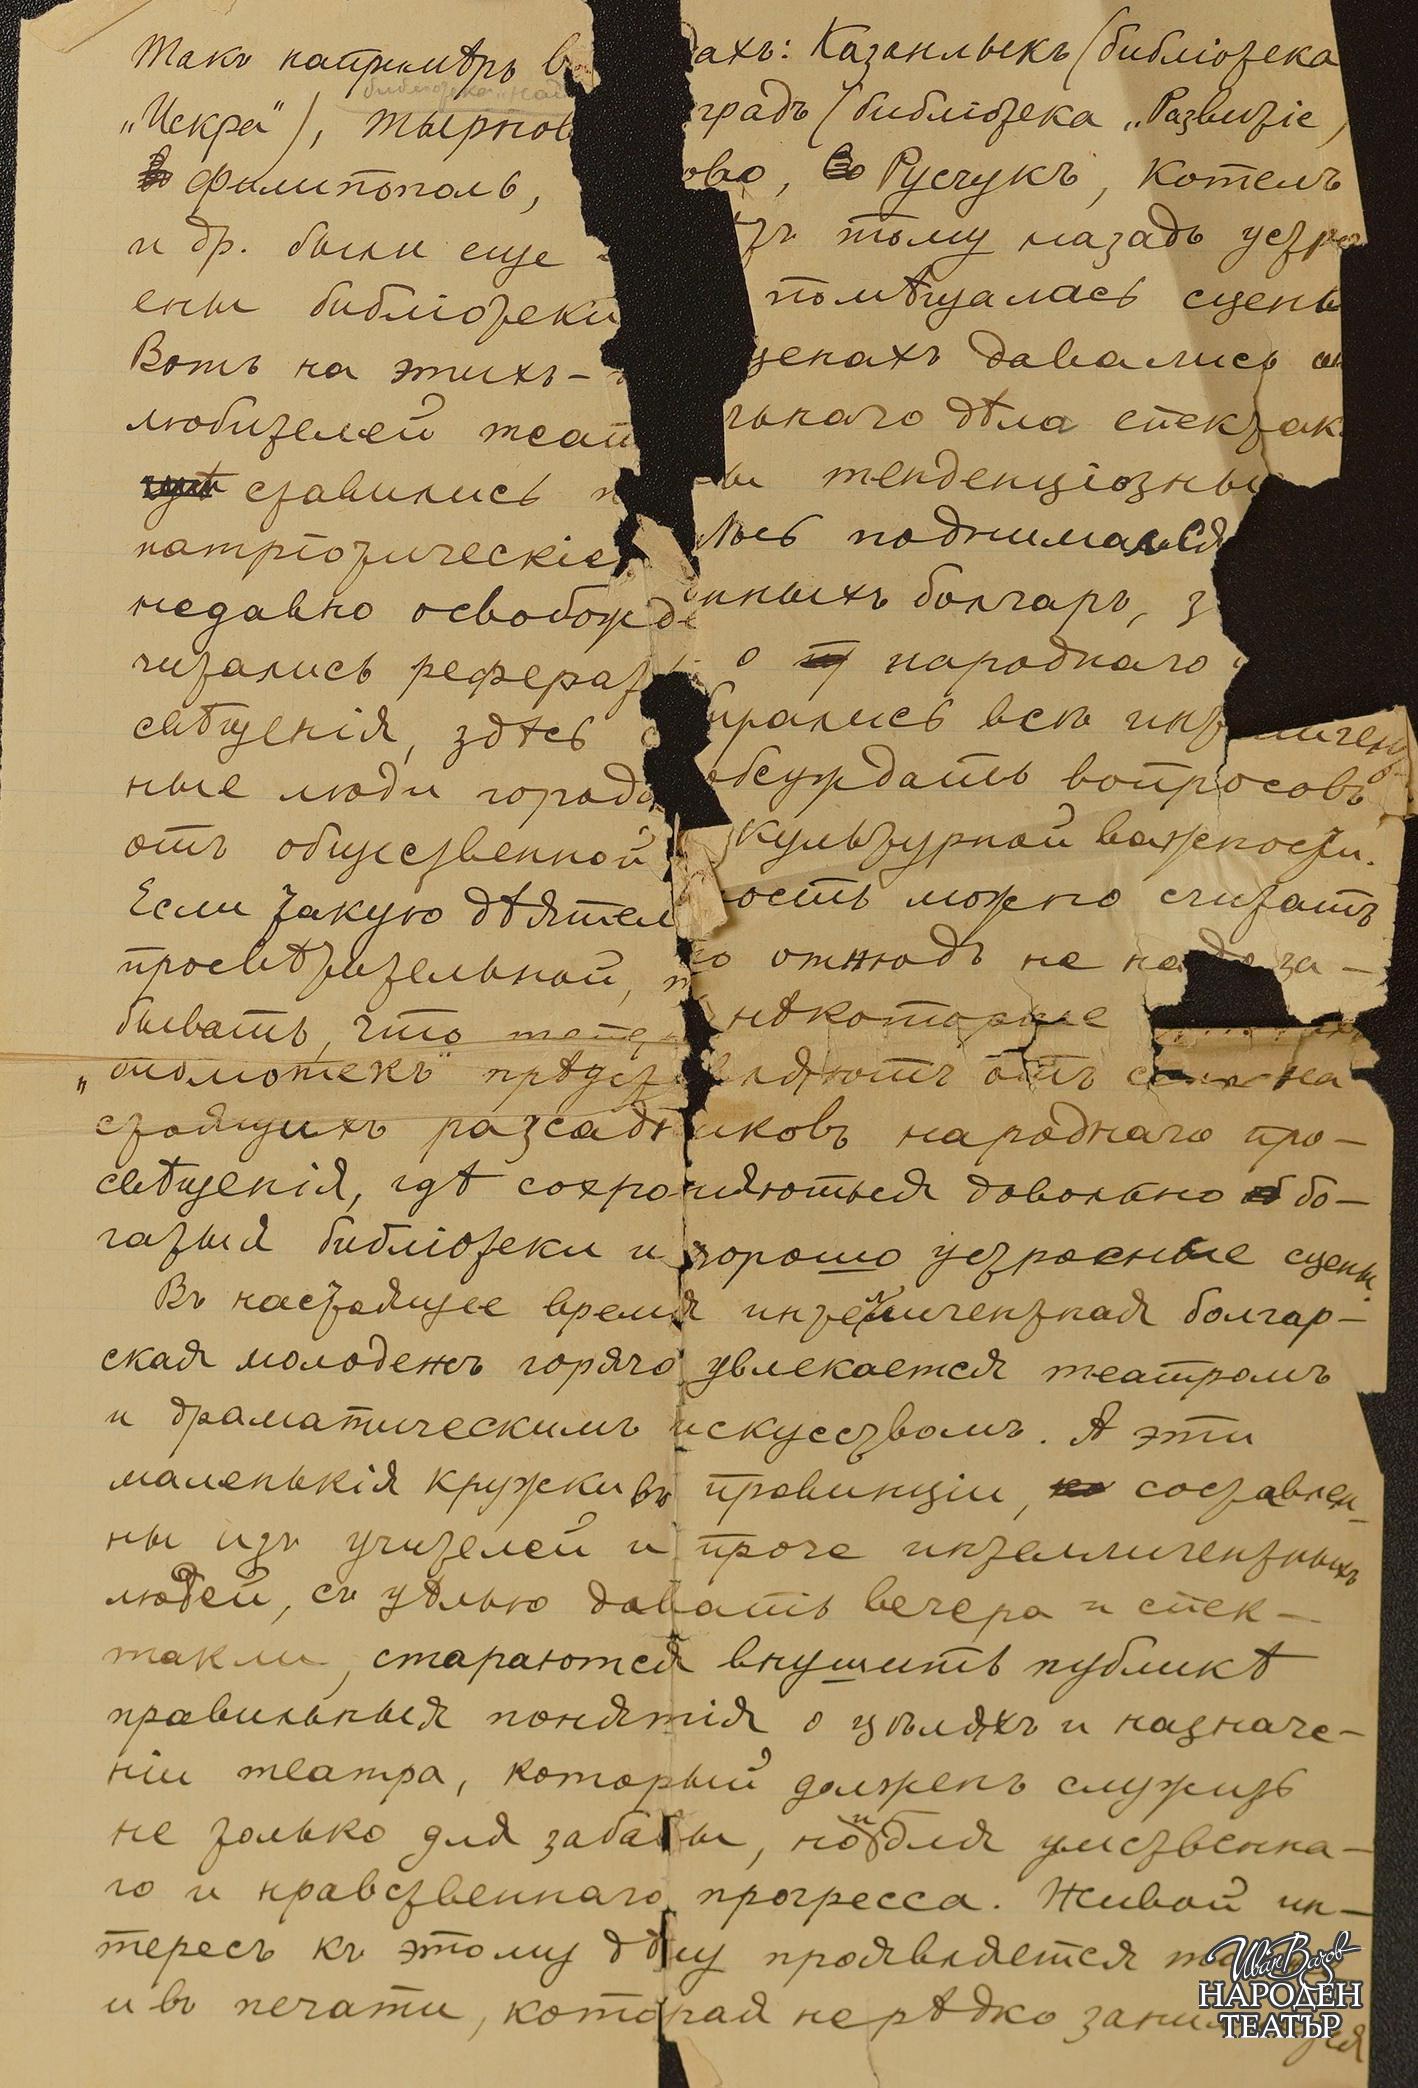 Такъ напримѣръ в дахъ: Казанлыкъ (библіотека
библіотека „Над
„Искра“), Тырнов градъ (библіотека „Развитіе,
Филипполь, ово, Русчукъ, Котелъ
и др. были еще тому назадъ устро
ены библіотеки помѣщалась сцены
Вотъ на этихъ- ценахъ давались
любителей теат льнаго дѣла спектак
ставились ы тенденціозны
патріотическіе поднимался
недавно освобожде нныхъ болгаръ, з
читались рефераты о народнаго
свѣщенія, здѣсь бирались всѣ интеллигент
ные люди города обсуждать вопросовъ
отъ общественной культурной важности.
Если такую дѣятел ность можно считать
просвѣтительной, то отнюдь не надо за-
бывать, что нѣкоторые
„библіотекъ“ представляютъ отъ себя на
стоящихъ разсадниковъ народнаго про-
свѣщенія, гдѣ сохроняються довольно бо-
гатыя библіотеки и хорошо устроеные сцены.
Въ настоящее время интеллигентная болгар-
ская молодежъ горячо увлекается театромъ
и драматическимъ искусствомъ. А эти
маленькія кружки въ провинціи, составлен-
ны изъ учителей и проче интеллигентныхъ
людей, съ цѣлью давать вечера и спек-
такли, стараются внушить публикѣ
правильныя понятія о цѣляхъ и назначе-
ніи театра, который долженъ служить
не только для забавы, но и для умственна-
го и нравственнаго прогресса. Живой ин-
тересъ къ этому дѣлу проявляется
и въ печати, которая нерѣдко занимается
Иван Вазов
НАРОДЕН
ТЕАТЪР